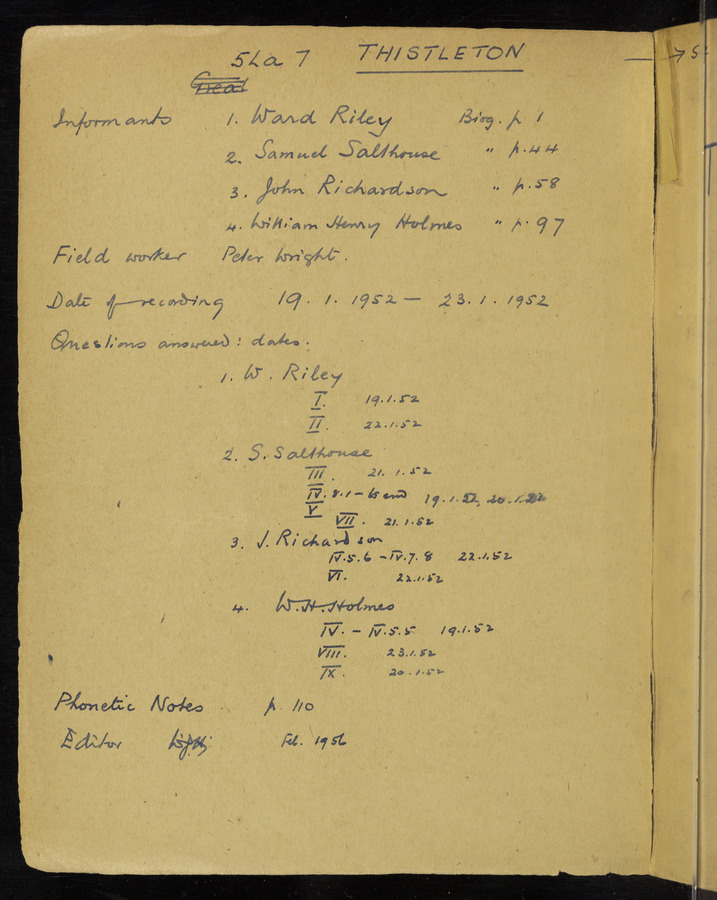 5La 7 THISTLETON
Great
Informants 1. Ward Riley Biog. p. 1
2. Samuel Salthouse " p. 44
3. John Richardson " p. 58
4. William Henry Holmes " p. 97
Field worker Peter Wright.
Date of recording 19. 1. 1952 — 23. 1. 1952
Questions answered: dates.
1. W. Riley
I. 19.1.52
II. 22.1.52
2. S. Salthouse
III. 21. 1.52
IV. 8.1 – to end 19.1.52, 20.1.52
V
VII. 21.1.52
3. J. Richardson
IV.5.6 – IV.7.8 22.1.52
VI. 22.1.52
4. W.H. Holmes
IV. – IV.5.5 19.1.52
VIII. 23.1.52
IX. 20.1.52
Phonetic Notes p. 110
Editor Feb. 1956
→ 5